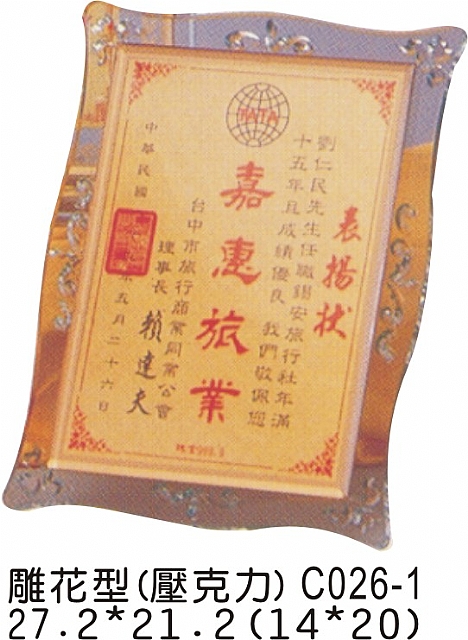 TATA
表揚狀
劉仁民先生任職錫安旅行社年滿
十五年且成績優良 我們敬佩您
嘉惠旅業
台中市旅行商業同業公會
理事長 賴達夫
中華民國
年五月二十六日
雕花型(壓克力) C026-1
27.2*21.2(14*20)